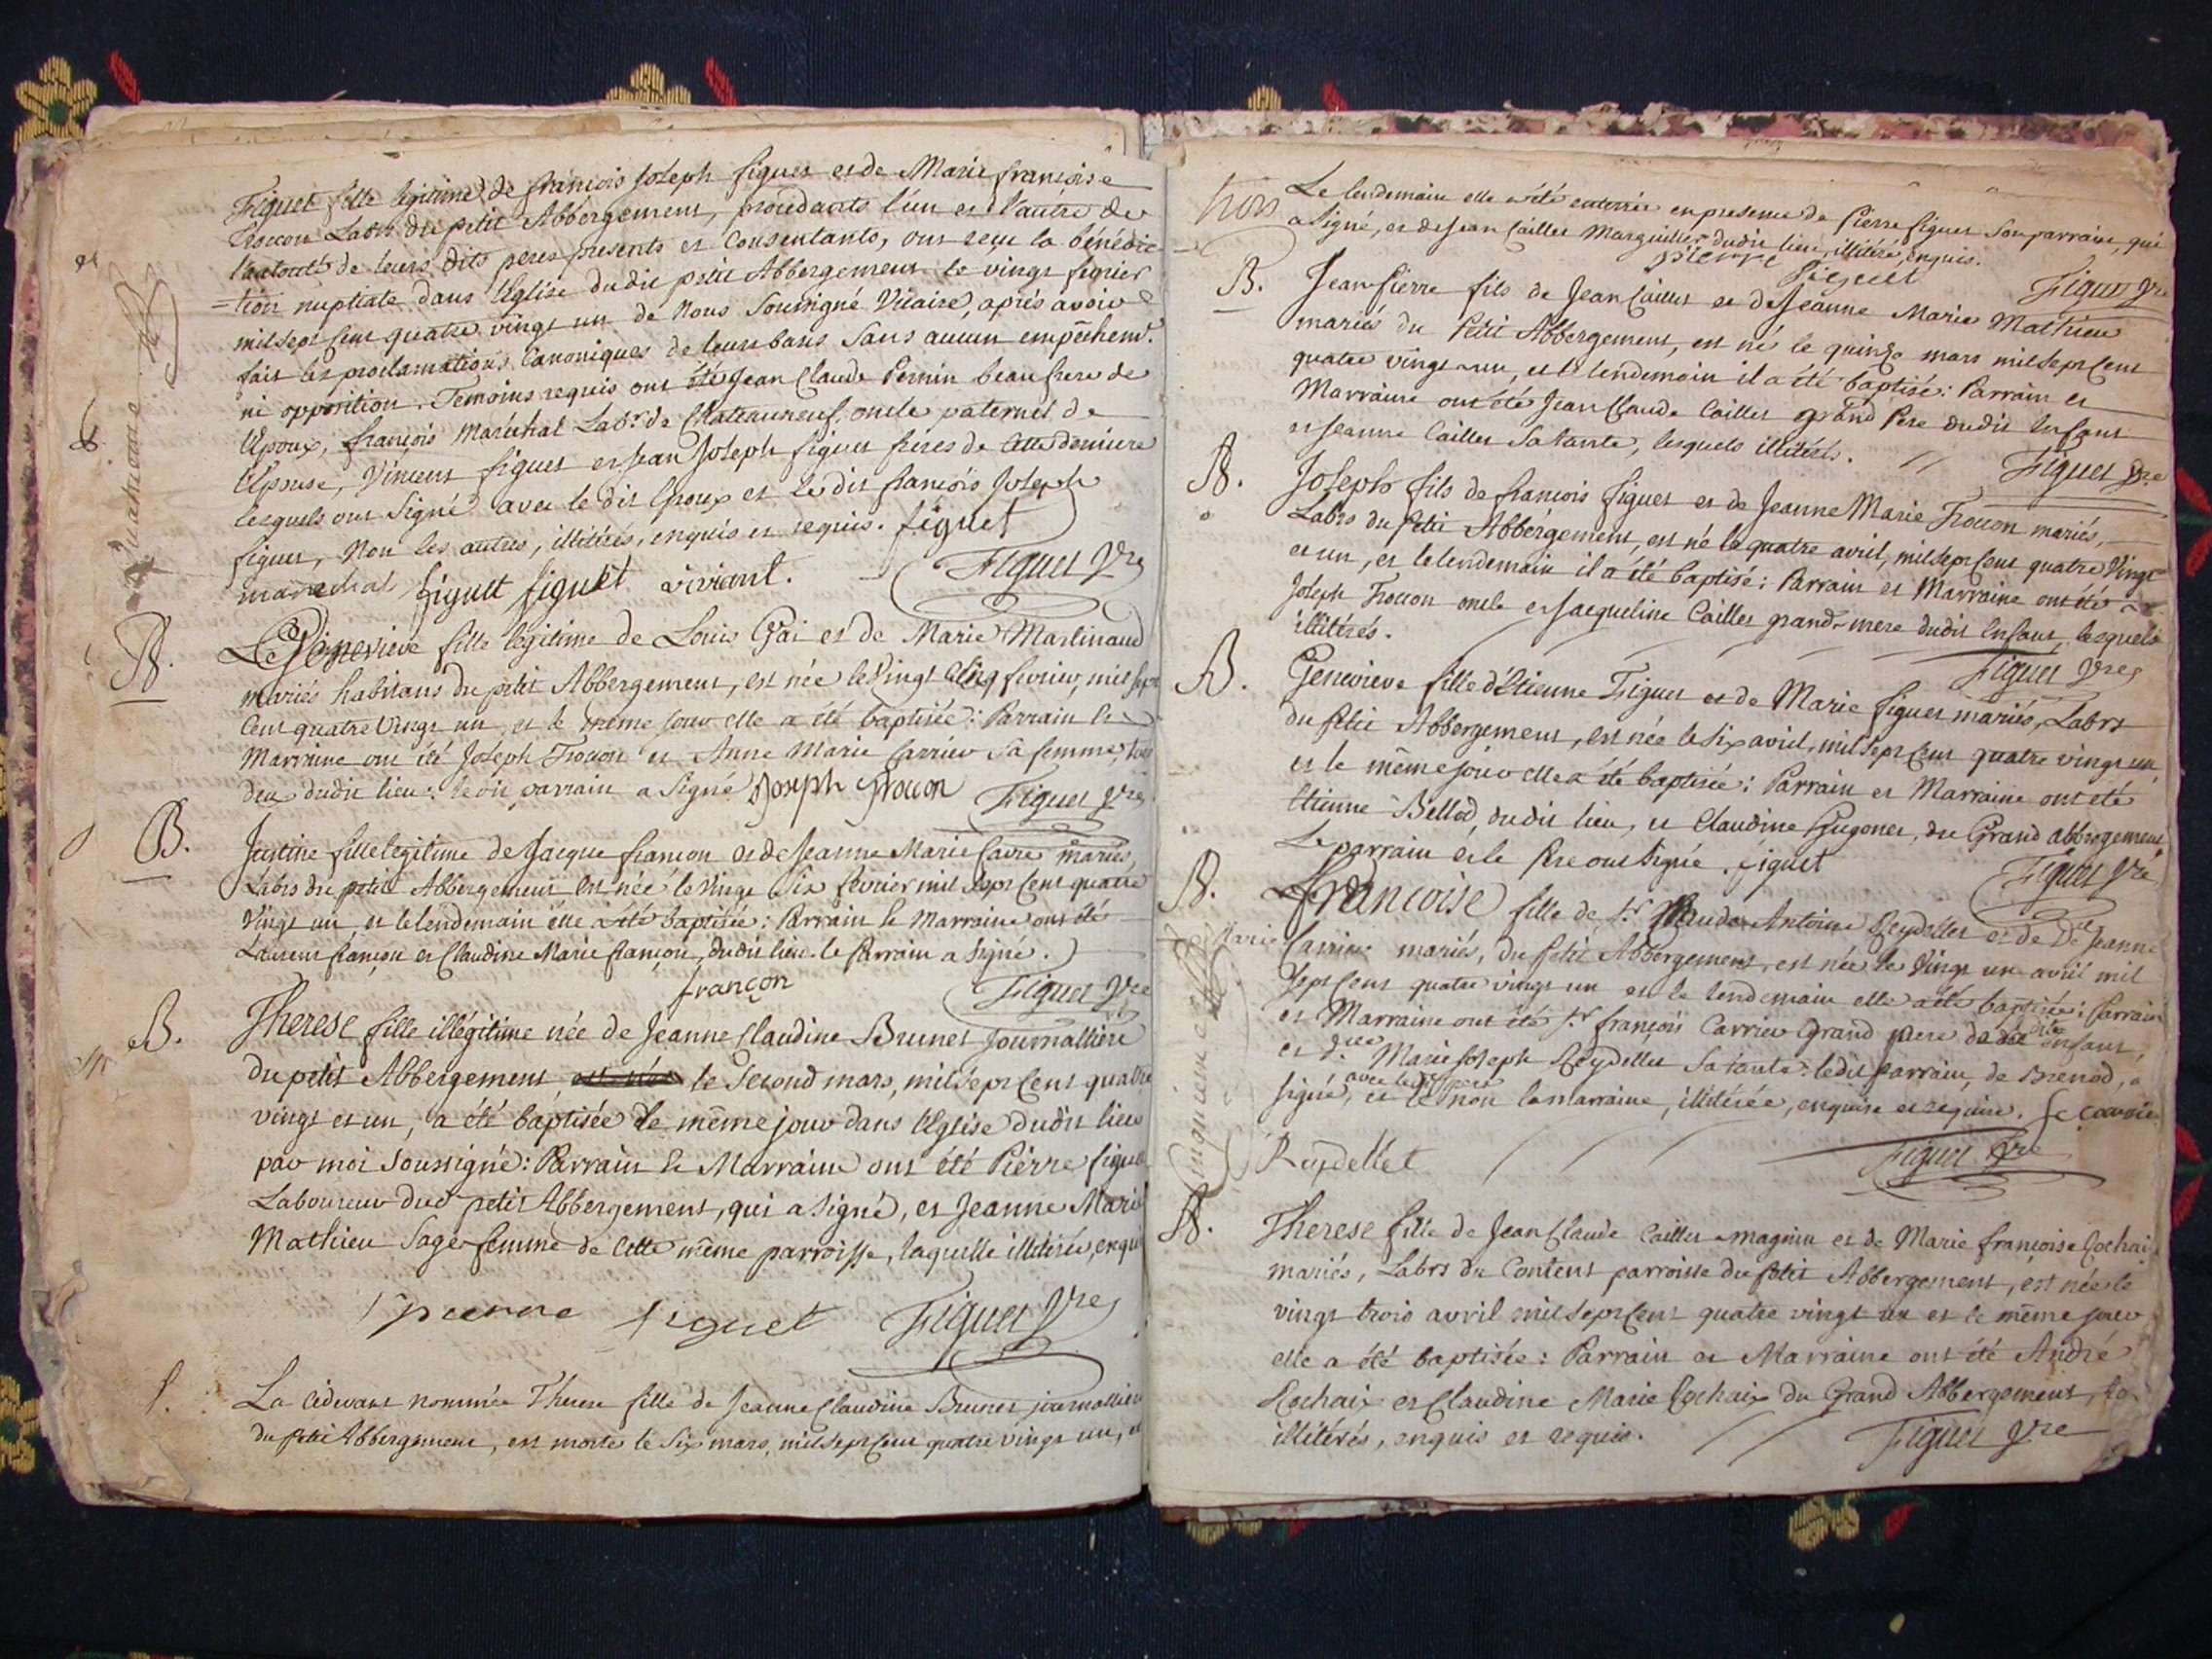 Figuet fille légitime de francois Joseph figuet et de Marie francoise
Troccon Labrs du petit Abbergement, procedants l'un et l'autre de
l'autorité de leurs dits peres presents et Consentants, ont reçu la bénédic
=tion nuptiale dans l'Eglise dudit petit Abbergement le vingt fevrier
mil sept cent quatre vingt un de Nous Soussigné Vicaire, après avoir
fait les proclamations Canoniques de leurs bans Sans aucun empêchemt.
ni opposition. Temoins requis ont été Jean Claude Pernin beaufrere de
l'Epoux, françois Maréchal Labr. de Chateauneuf, oncle paternel de
l'Epouse, Vincent figuet et Jean Joseph figuet freres de cette derniere
lesquels ont Signé avec le dit Epoux et le dit francois Joseph
figuet, Non les autres, illitérés, enquis et requis. figuet
marechal figuet figuet viviant. Figuet Vre
B.
Genevieve fille légitime de Louis Gai et de Marie Martinaud
mariés habitans du petit Abbergement, est née le Vingt Cinq fevrier, mil sept
Cent quatre Vingt un et le même jour elle a été baptisée: Parrain et
Marraine ont été Joseph Trocon et Anne Marie Carrier Sa femme, tous
deux dudit lieu: le dit parrain a Signé Joseph Trocon Figuet Vre
B.
Justine fille légitime de Jacque francon et de Jeanne Marie favre mariés,
Labrs du petit Abbergement est née le Vingt Six fevrier mil Sept Cent quatre
Vingt un et le lendemain elle a été baptisée: Parrain et Marraine ont été
Laurent françon et Claudine Marie françon, dudit lieu. le Parrain a Signé.
françon Figuet Vre
B.
Therese fille illégitime née de Jeanne Claudine Brunet Journalliere
du petit Abbergement le Second mars, mil Sept Cent quatre
vingt et un, a été baptisée le même jour dans l'Eglise dudit lieu
par moi soussigné: Parrain et Marraine ont été Pierre figuet
Laboureur dud petit Abbergement, qui a signé, et Jeanne Marie
Mathieu Sage-femme de cette même parroisse, laquelle illitérée, enqu
pierre figuet Figuet Vre
La cidevant nommée Therese fille de Jeanne Claudine Brunet journalliere
du petit Abbergement, est morte le Six mars, mil sept cent quatre vingt un, et
trois
Le lendemain elle a été enterrée en presence de Pierre figuet Son parrain, qui
a Signé, et de Jean Caillet Marguillier dudit lieu, illitéré, enquis.
pierre figuet Figuet Vre
B.
Jean Pierre fils de Jean Caillet et de Jeanne Marie Mathieu
mariés du Petit Abbergement, est né le quinze mars mil Sept Cent
quatre vingt-un, et le lendemain il a été baptisé: Parrain et
Marraine ont été Jean Claude Caillet grand Pere dudit Enfant
et Jeanne Caillet Sa tante, lesquels illitérés. Figuet Vre
B.
Joseph fils de francois figuet et de Jeanne Marie Trocon mariés,
Labrs du Petit Abbergement, est né le quatre avril, mil sept Cent quatre Vingt
et un, et le lendemain il a été baptisé: Parrain et Marraine ont été
Joseph Trocon oncle et Jacqueline Caillet grand-mere dudit Enfant, lesquels
illitérés. Figuet Vre
B.
Genevieve fille d'Etienne Figuet et de Marie figuet mariés, Labrs
du Petit Abbergement, est née le Six avril, mil sept cent quatre vingt un
et le même jour elle a été baptisée: Parrain et Marraine ont été
Etienne Bellod, dudit lieu, et Claudine Gugonet, du Grand abbergement
Le parrain et le Pere ont Signé. figuet Figuet Vre
B.
Francoise fille de Sr Claude Antoine Reydellet et de Dlle Jeanne
Marie Carrier mariés, du Petit Abbergement, est née le Vingt un avril mil
Sept Cent quatre vingt un et le lendemain elle a été baptisée: Parrain
et Marraine ont été Sr françois Carrier Grand pere de dite Enfant,
et Dlle Marie Joseph Reydellet Sa tante: ledit parrain, de Brenod, a
signé, avec le dit pere et non la marraine, illitérée, enquise et requise.
Reydellet Figuet Vre
B.
Therese fille de Jean Claude Caillet-magnin et de Marie françoise Cochaix
mariés, Labrs de Contens parroisse du Petit Abbergement, est née le
vingt trois avril mil Sept Cent quatre vingt un et le même jour
elle a été baptisée: Parrain et Marraine ont été André
Cochaix et Claudine Marie Cochaix du Grand Abbergement,
illitérés, enquis et requis. Figuet Vre